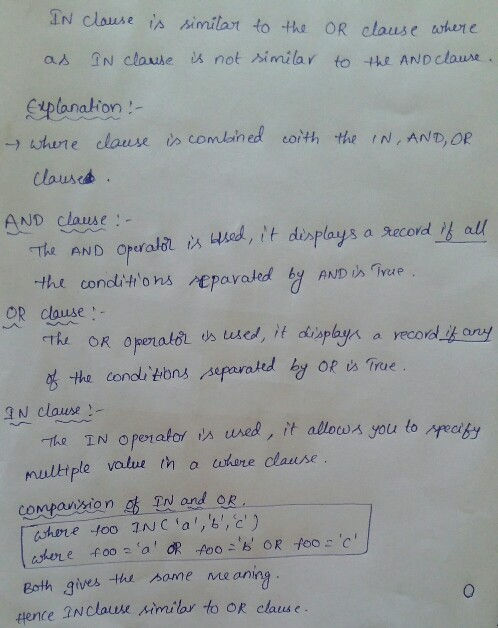 IN clause is similar to the OR clause where
as IN clause is not similar to the AND clause.
Explanation :-
→ where clause is combined with the IN, AND, OR
clauses.
AND clause :-
The AND operator is used, it displays a record if all
the conditions separated by AND is True.
OR clause :-
The OR operator is used, it displays a record if any
of the conditions separated by OR is True.
IN clause :-
The IN operator is used, it allows you to specify
multiple value in a where clause.
comparision of IN and OR.
where foo IN ('a','b','c')
where foo = 'a' OR foo = 'b' OR foo = 'c'
Both gives the same meaning.
Hence IN clause similar to OR clause.